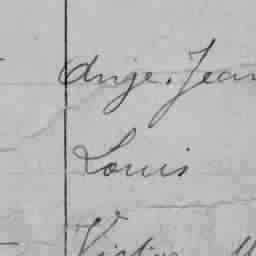 Ange. Jean
Louis
Victor